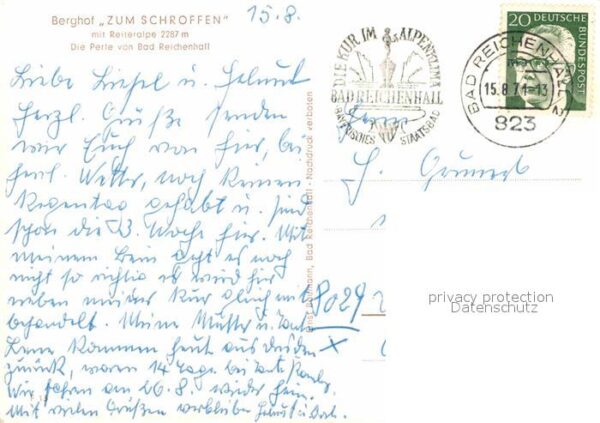 Berghof „ZUM SCHROFFEN"
mit Reiteralpe 2287 m
Die Perle von Bad Reichenhall
15.8.
Liebe Liesel u. Helmut
Herzl. Grüße senden
wir Euch von hier, bei
herrl. Wetter, noch keinen
Regentag gehabt u. sind
schon die 3. Woche hier. Mit
meinem Bein geht es noch
nicht so richtig es wird hier
neben meiner Kur gleich mit
behandelt. Meine Mutter u. Tante
Lene kommen heut aus
zurück, waren 14 Tage bei Tante
Wir fahren am 26.8. wieder heim.
Mit vielen Grüßen verbleiben Helmut u.
Bad Reichenhall - Nachdruck verboten
DIE KUR IM ALPENKLIMA
BAD REICHENHALL
BAYERISCHES STAATSBAD
20 DEUTSCHE
BUNDESPOST
BAD REICHENHALL
15.8.71-13
823
8029
privacy protection
Datenschutz